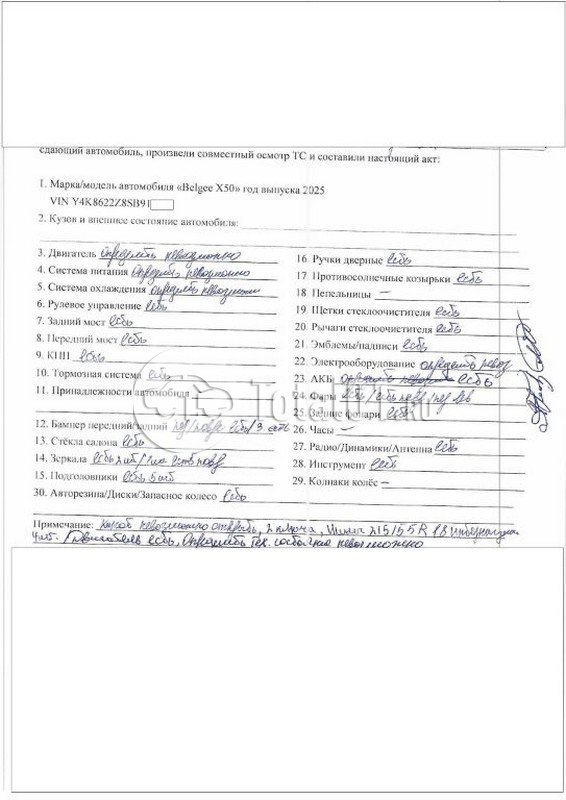 сдающий автомобиль, произвели совместный осмотр ТС и составили настоящий акт:
1. Марка/модель автомобиля «Belgee X50» год выпуска 2025
VIN Y4K8622Z8SB91
2. Кузов и внешнее состояние автомобиля:
3. Двигатель определить невозможно
4. Система питания определить невозможно
5. Система охлаждения определить невозможно
6. Рулевое управление есть
7. Задний мост есть
8. Передний мост есть
9. КПП есть
10. Тормозная система есть
11. Принадлежности автомобиля
12. Бампер передний/задний пер/повр есть/з есть
13. Стёкла салона есть
14. Зеркала есть
15. Подголовники есть 5 шт
16 Ручки дверные есть
17 Противосолнечные козырьки есть
18 Пепельницы —
19 Щетки стеклоочистителя есть
20. Рычаги стеклоочистителя есть
21. Эмблемы/надписи есть
22. Электрооборудование определить невоз
23. АКБ есть
24. Фары
25. Задние фонари есть
26. Часы —
27. Радио/Динамики/Антенна есть
28. Инструмент есть
29. Колпаки колёс —
30. Авторезина/Диски/Запасное колесо есть
Примечание: Капот невозможно открыть, 2 ключа, Шина 215/55 R 18
4 шт. Двигатель есть, Определить тех. состояние невозможно
Total01.ru